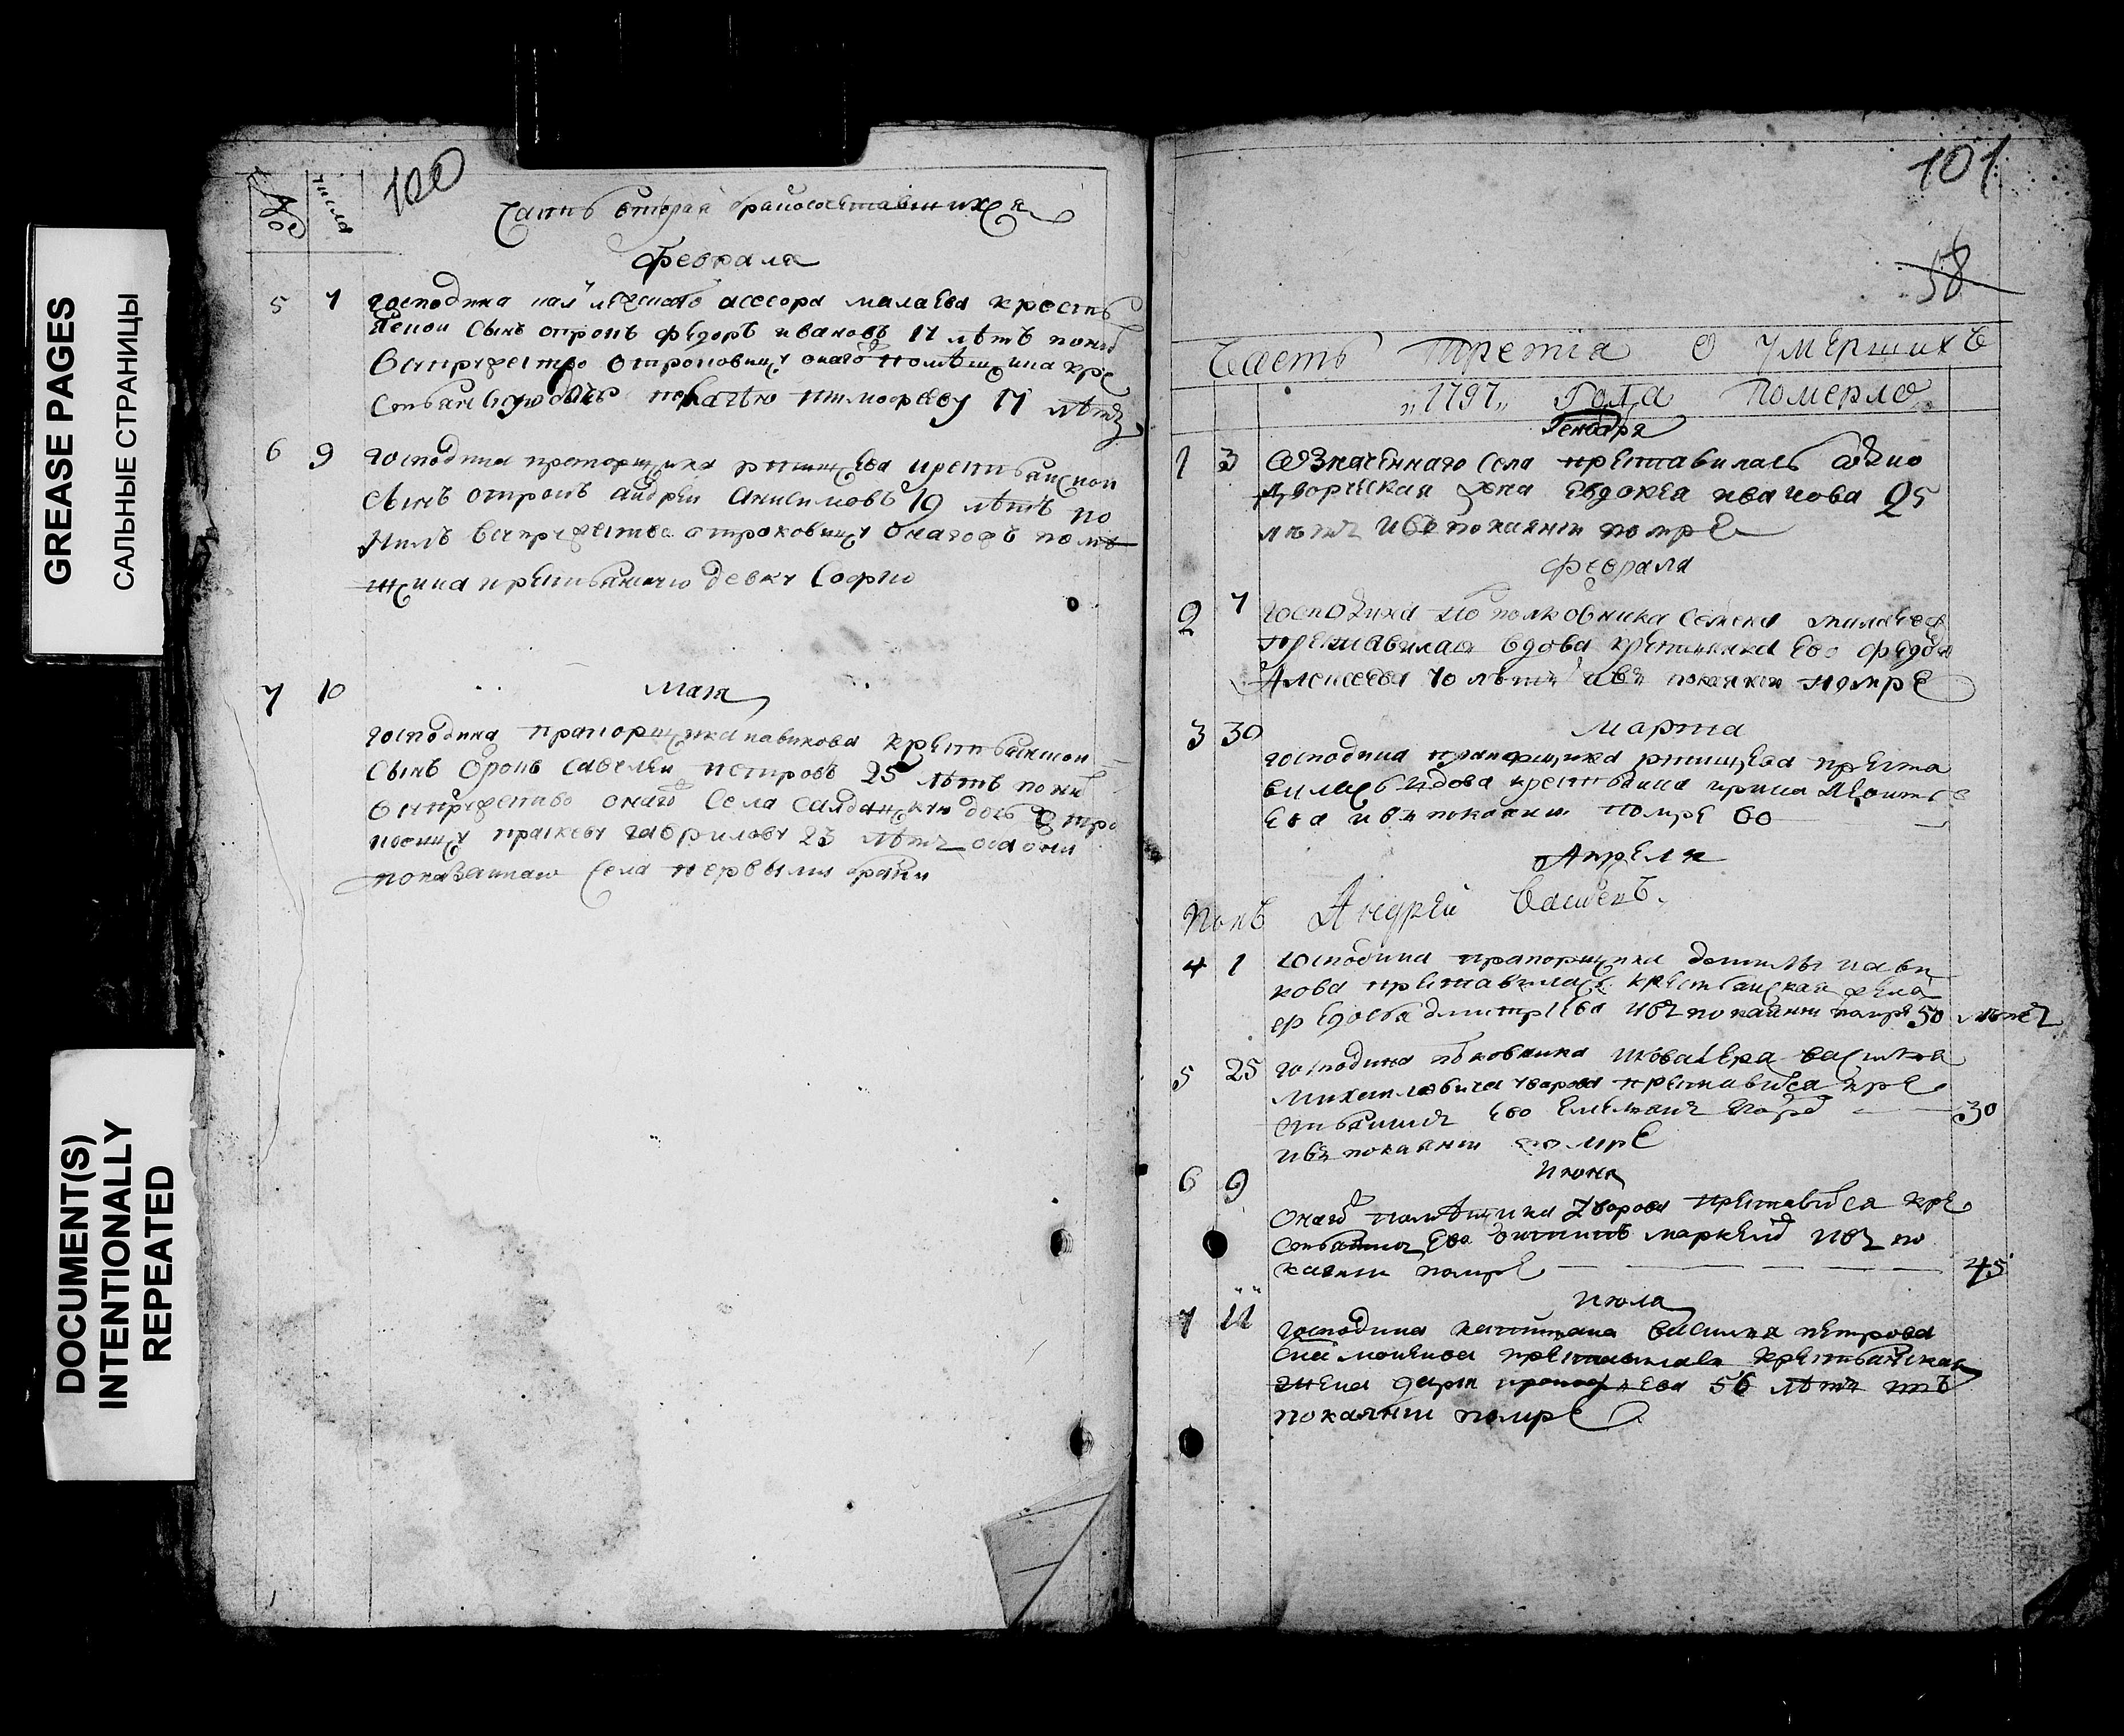 GREASE PAGES
САЛЬНЫЕ СТРАНИЦЫ
DOCUMENT(S)
INTENTIONALLY
REPEATED
№
числа
100
Часть вторая бракосочетавшихся
Февраля
5 7 господина асессора малаева кресть
сынъ отрокъ федоръ ивановъ 17 лѣтъ понялъ
отроковицу онаго помѣщика кре
тимофееву 17 лѣтъ
6 9 господина прапорщика ртищева крестьянской
сынъ отрокъ андрей анисимовъ 19 лѣтъ по
нялъ в супружество отроковицу онагожъ помѣ
щика крестьянскую девку софию
7 10 Мая
господина прапорщика навикова крестьянской
сынъ отрокъ савелей петровъ 25 лѣтъ понялъ
в супружество онаго села салдацкую дочь отро
ковицу праскеву гаврилову 23 лѣтъ оба они
показаннаго села первымъ бракомъ
101
58
Часть третіа о умершихъ
„1797„ Года Померло
Генваря
1 3 Означеннаго села преставилась одно
дворческая жена евдокея иванова 25
лѣтъ ивъ покаянии помре
февраля
2 7 господина полковника семена милаева
преставилась вдова крестьянка его федо
Алексеева 70 лѣтъ ивъ покаянии помре
Марта
3 30 господина прапорщика ртищева преста
вилась вдова крестьянка ирина леонтье
ева ивъ покаянии помре 60
Апреля
Попъ Андрей Васильевъ
4 1 господина прапорщика данилы нави
кова преставилась крестьянская жена
федосья дмитриева ивъ покаянии помре 50 лѣтъ
5 25 господина полковника иковалера василья
михаиловича уварова преставился кре
стьянинъ ево 30
ивъ покаянии помре
Июня
6 9 онаго помѣщика уварова преставился кре
стьянинъ ево маркелъ ивъ по
каянии помре 45
Июла
7 11 господина капитана василья петрова
преставилась крестьянская
жена дарья 56 лѣтъ въ
покаянии помре